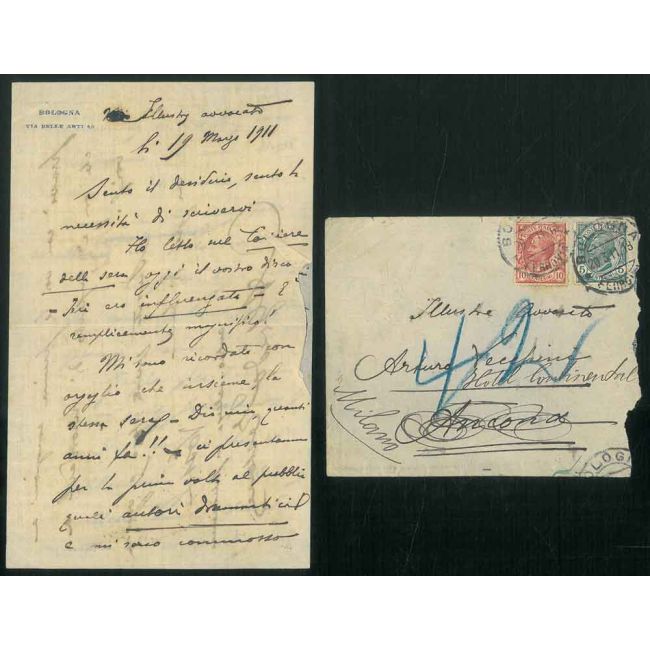 BOLOGNA
VIA DELLE ARTI
Illustre avvocato
li 19 Marzo 1911
Sento il desiderio, sento la
necessità di scrivervi
Ho letto nel Corriere
della sera oggi il vostro disco
- Ieri ero influenzato - E'
semplicemente magnifico!
Mi sono ricordato con
orgoglio che insieme, la
stessa sera - Dio mio, quanti
anni fa!! - ci presentammo
per la prima volta al pubblico
quali autori drammatici
e mi sono commosso
10 10
5
Illustre avvocato
Arturo
Hotel Continental
Ancona
Milano
421
BOLOGNA
20.3.11
BOLOGN